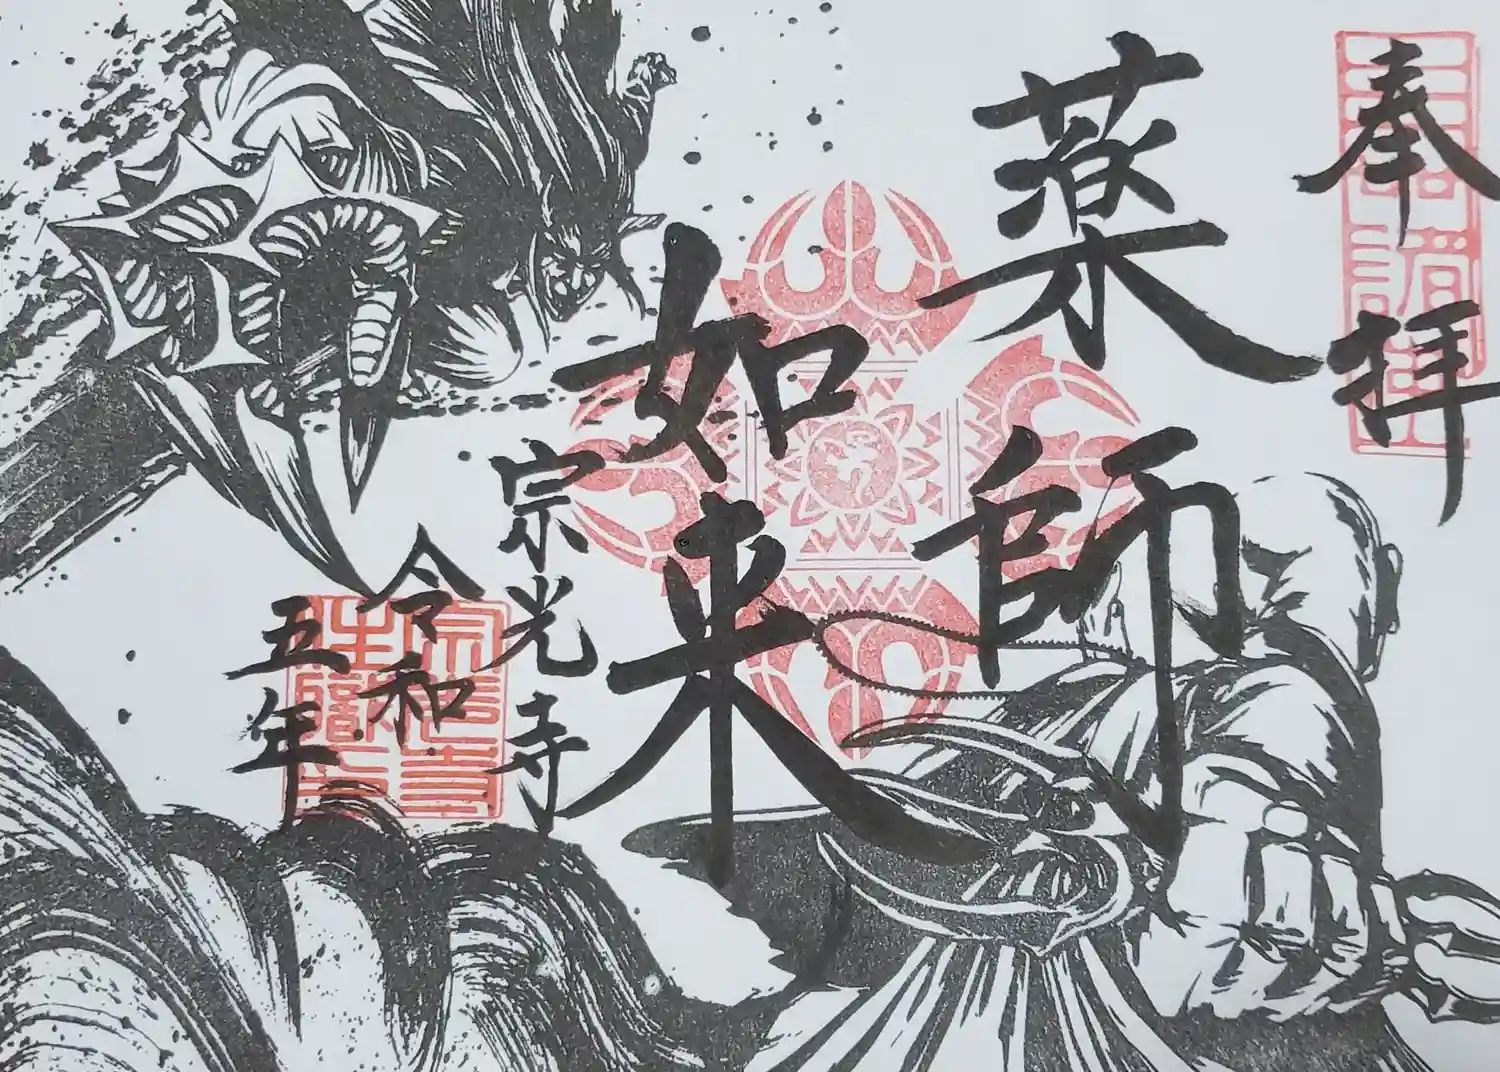 奉拝
薬師
如来
宗光寺
令和
五年